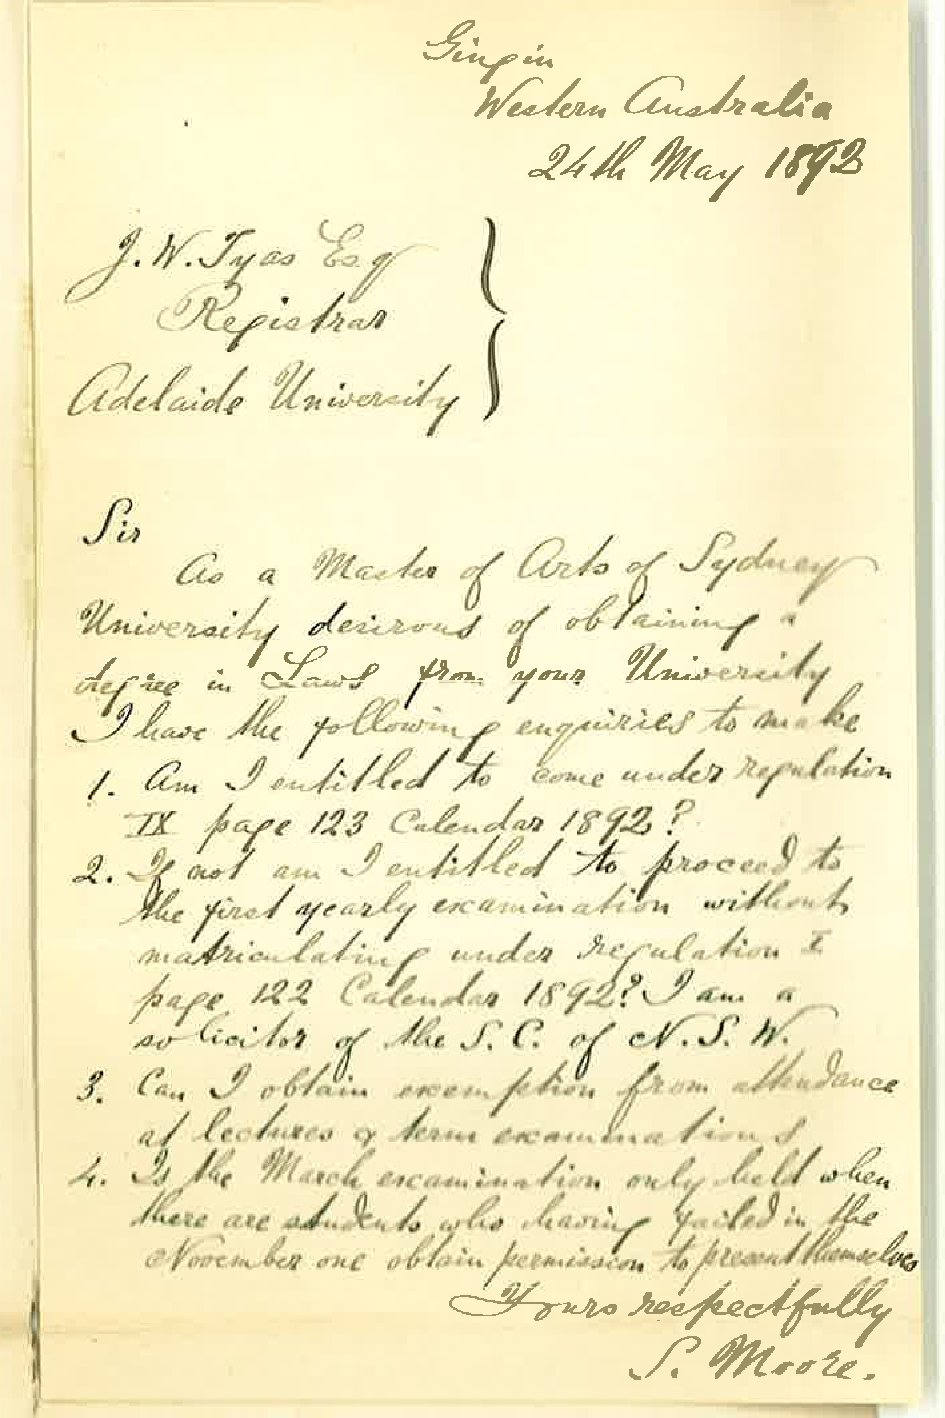 Gingin
Western Australia
24th May 1892
J. W. Tyas Esq
Registrar
Adelaide University
Sir
As a Master of Arts of Sydney
University desirous of obtaining a
degree in Laws from your University
I have the following enquiries to make
1. Am I entitled to come under regulation
IX page 123 Calendar 1892?
2. If not am I entitled to proceed to
the first yearly examination without
matriculating under regulation I
page 122 Calendar 1892? I am a
solicitor of the S. C. of N. S. W.
3. Can I obtain exemption from attendance
at lectures & term examinations
4. Is the March examination only held when
there are students who having failed in the
November one obtain permission to present themselves
Yours respectfully
S. Moore.